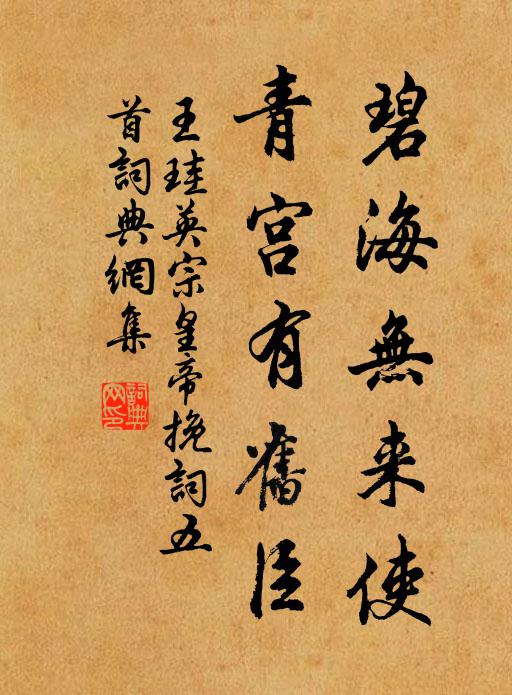 碧海無来使
青宫有舊臣
王珪英宗皇帝挽詞五
首詞典網集
詞典
网印